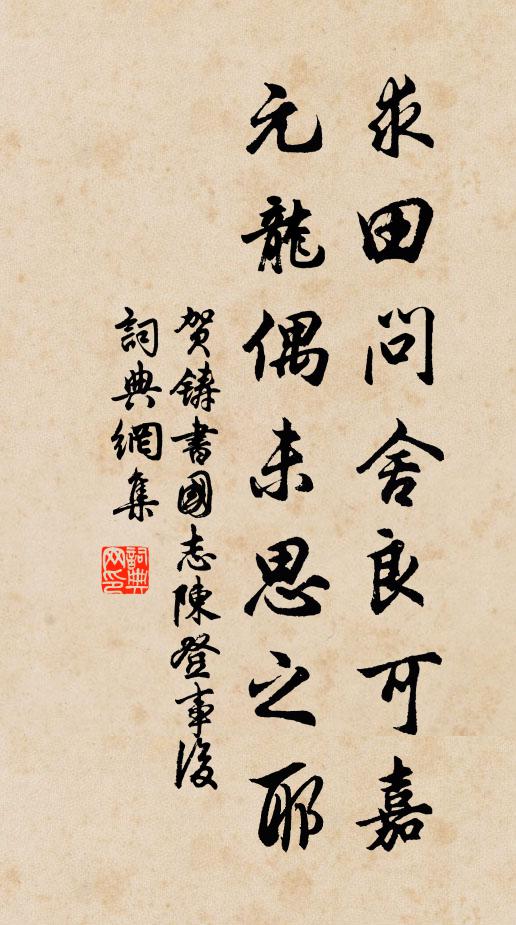 求田問舍良可嘉
元龍偶未思之耶
賀鑄書國志陳登事後
詞典網集
詞典網印